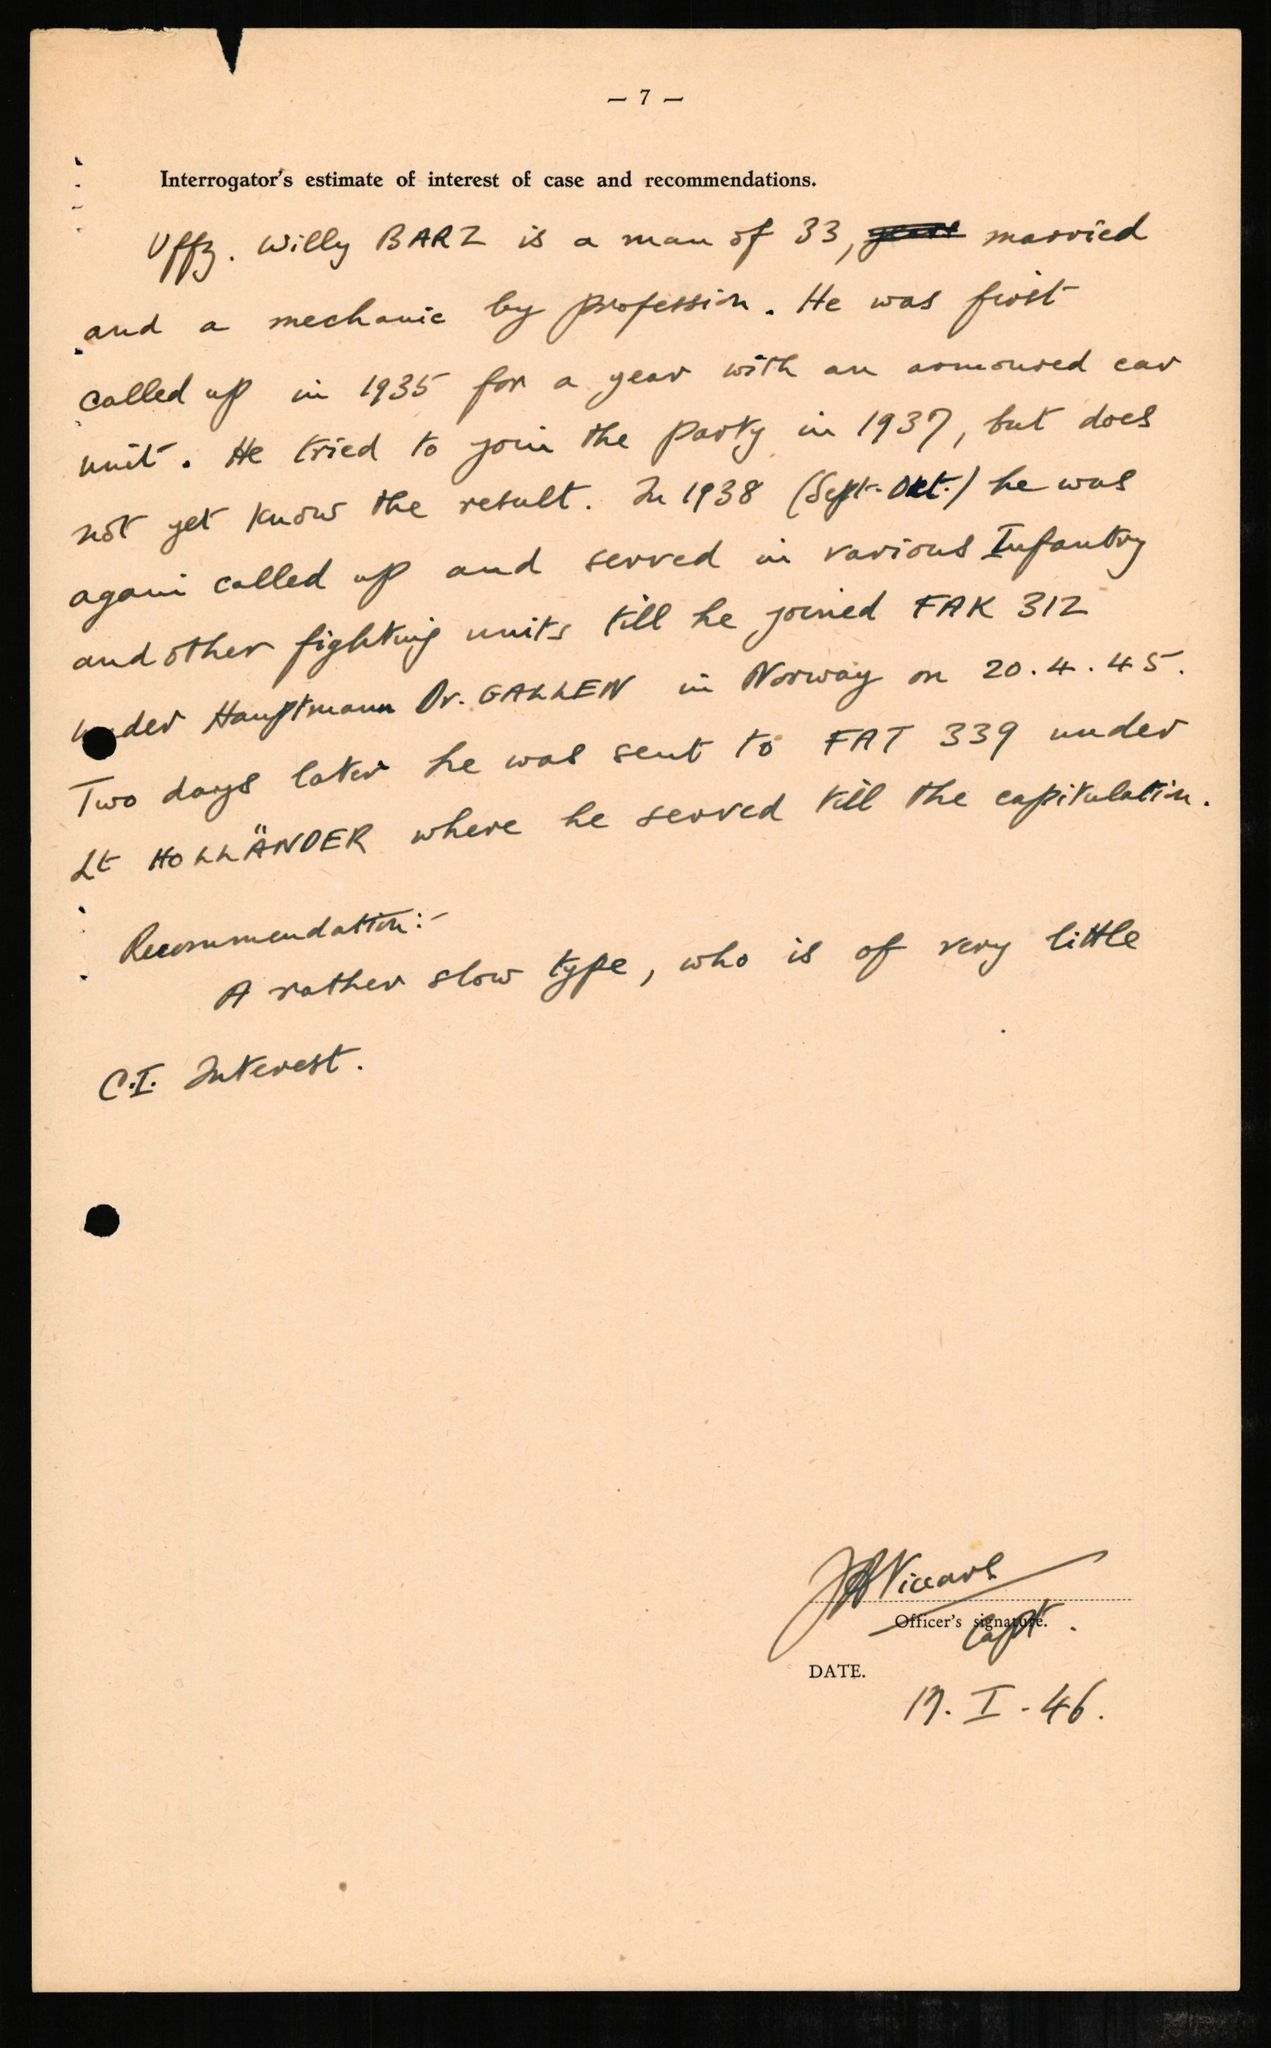 — 7 —
Interrogator's estimate of interest of case and recommendations.
Uffz. Willy BARZ is a man of 33, years married
and a mechanic by profession. He was first
called up in 1935 for a year with an armoured car
unit. He tried to join the party in 1937, but does
not yet know the result. In 1938 (Sept.-Okt.) he was
again called up and served in various Infantry
and other fighting units till he joined FAK 312
under Hauptmann Dr. GALLEN in Norway on 20.4.45.
Two days later he was sent to FAT 339 under
Lt HOLLÄNDER where he served till the capitulation.
Recommendation:-
A rather slow type, who is of very little
C.I. Interest.
Officer's signature.
Capt.
DATE.
17. I - 46.